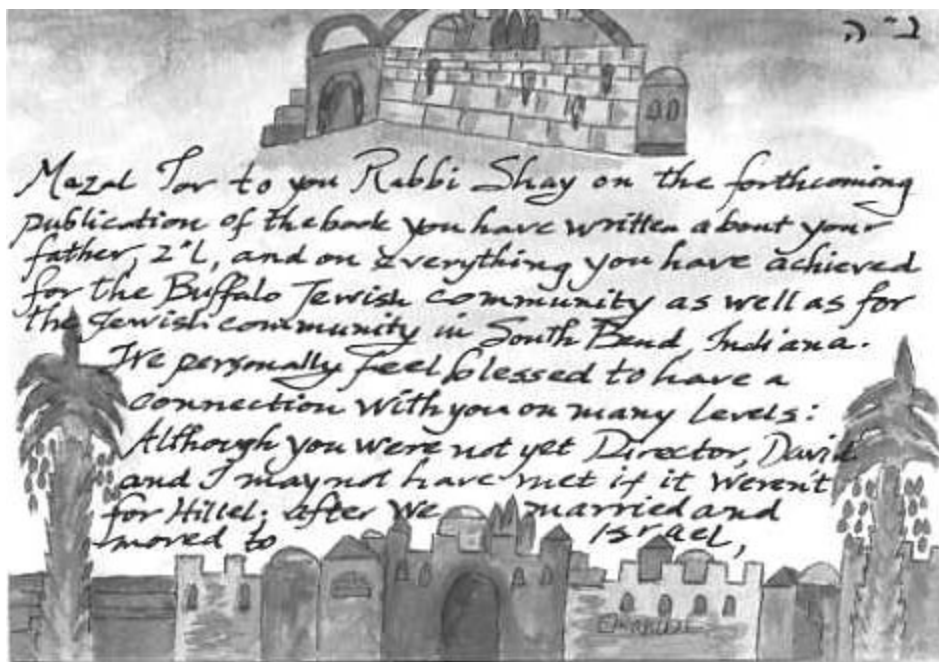 ב"ה
Mazal Tov to you Rabbi Shay on the forthcoming
publication of the book you have written about your
father, z"l, and on everything you have achieved
for the Buffalo Jewish community as well as for
the Jewish community in South Bend, Indiana.
We personally feel blessed to have a
connection with you on many levels:
Although you were not yet Director, David
and I may not have met if it weren't
for Hillel; after we married and
moved to Israel,